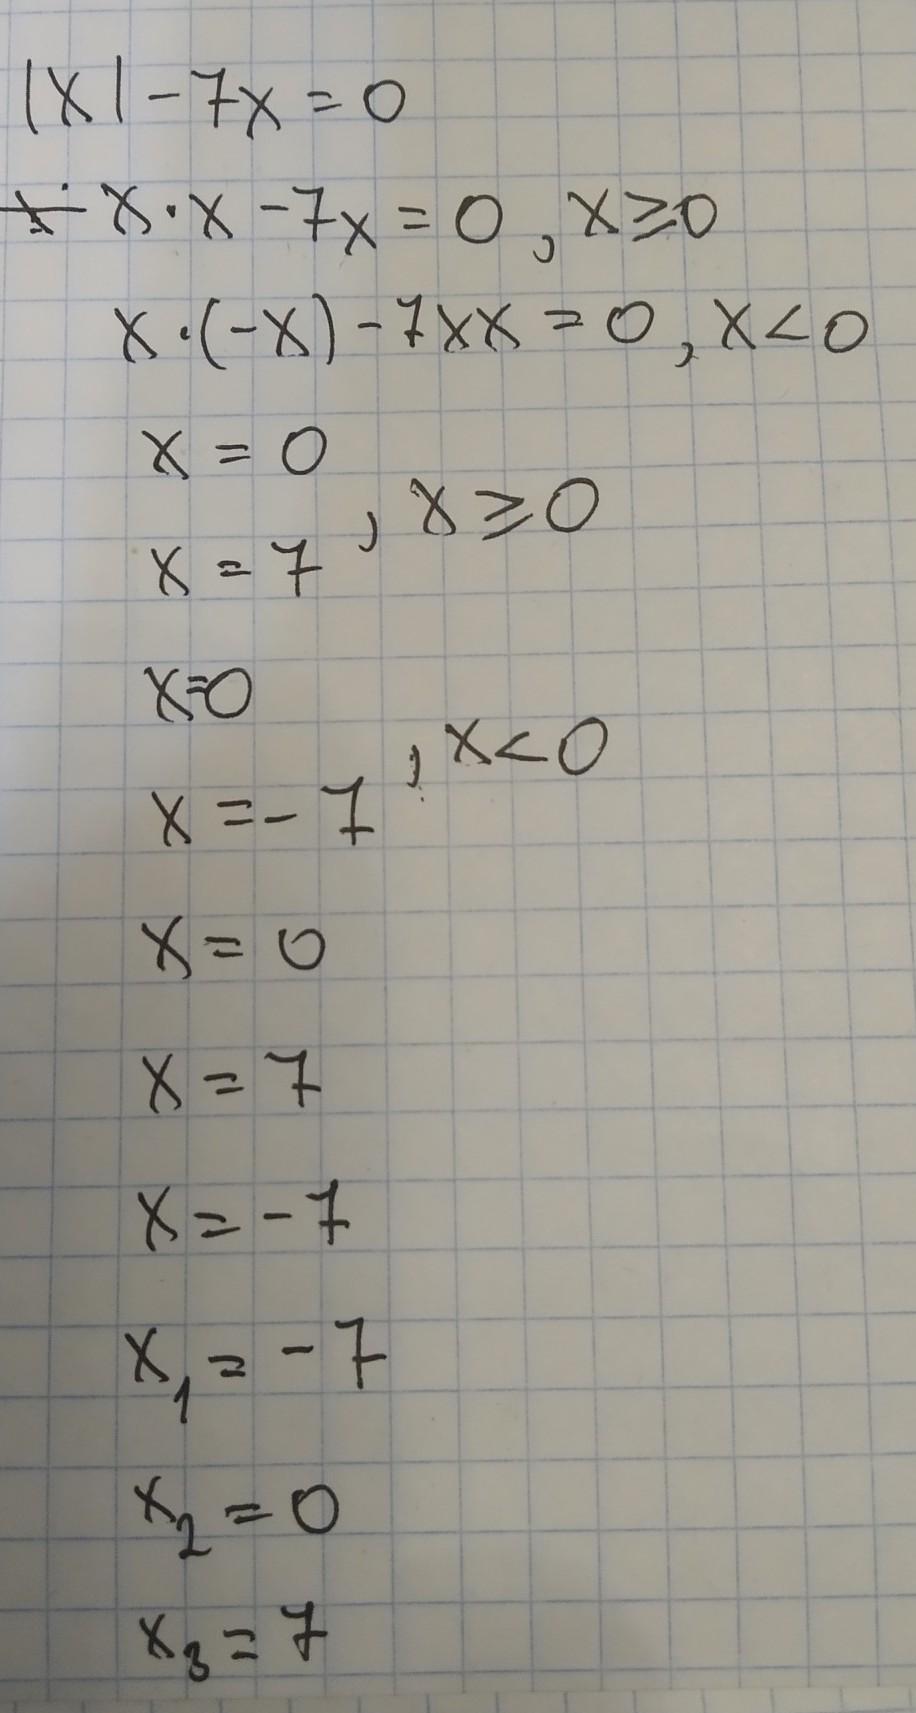 |x| - 7x = 0
x · x - 7x = 0 , x ≥ 0
x · (-x) - 7xx = 0 , x < 0
x = 0
, x ≥ 0
x = 7
x=0
, x < 0
x = - 7
x = 0
x = 7
x = - 7
x₁ = - 7
x₂ = 0
x₃ = 7